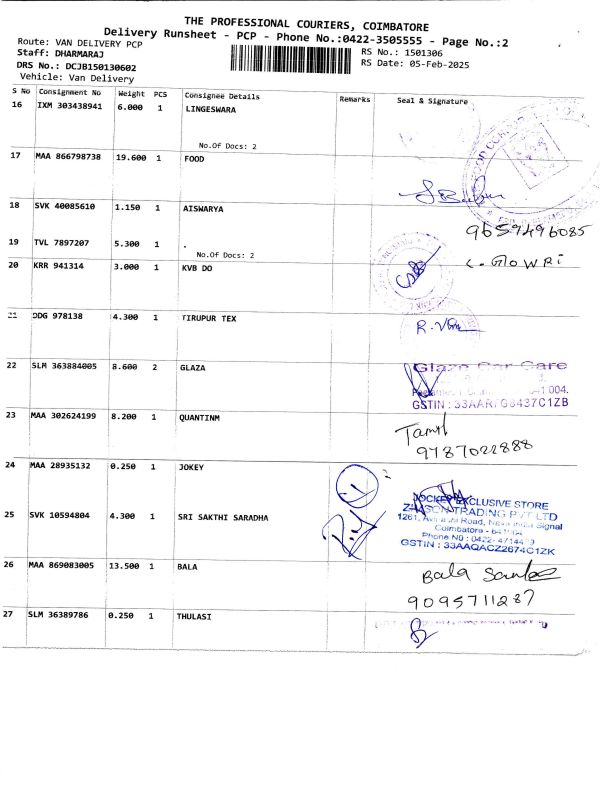 THE PROFESSIONAL COURIERS, COIMBATORE
Delivery Runsheet - PCP - Phone No.:0422-3505555 - Page No.:2
Route: VAN DELIVERY PCP
Staff: DHARMARAJ
RS No.: 1501306
DRS No.: DCJB150130602
RS Date: 05-Feb-2025
Vehicle: Van Delivery
S No Consignment No Weight PCS Consignee Details Remarks Seal & Signature
16 IXM 303438941 6.000 1 LINGESWARA
No.Of Docs: 2
17 MAA 866798738 19.600 1 FOOD
18 SVK 40085610 1.150 1 AISWARYA
9659496085
19 TVL 7897207 5.300 1 .
No.Of Docs: 2
20 KRR 941314 3.000 1 KVB DO
C. GOWRI
21 DDG 978138 4.300 1 TIRUPUR TEX
22 SLM 363884005 8.600 2 GLAZA
Glaze Car Care
GSTIN :
23 MAA 302624199 8.200 1 QUANTINM
Tamil
9787022888
24 MAA 28935132 0.250 1 JOKEY
JOCKEY EXCLUSIVE STORE
TRADING PVT LTD
25 SVK 10594804 4.300 1 SRI SAKTHI SARADHA
1261, Avinashi Road, Nava India Signal
Coimbatore -
Phone N0 : 0422-
GSTIN : 33AAQACZ2674C1ZK
26 MAA 869083005 13.500 1 BALA
Bala
9095711287
27 SLM 36389786 0.250 1 THULASI